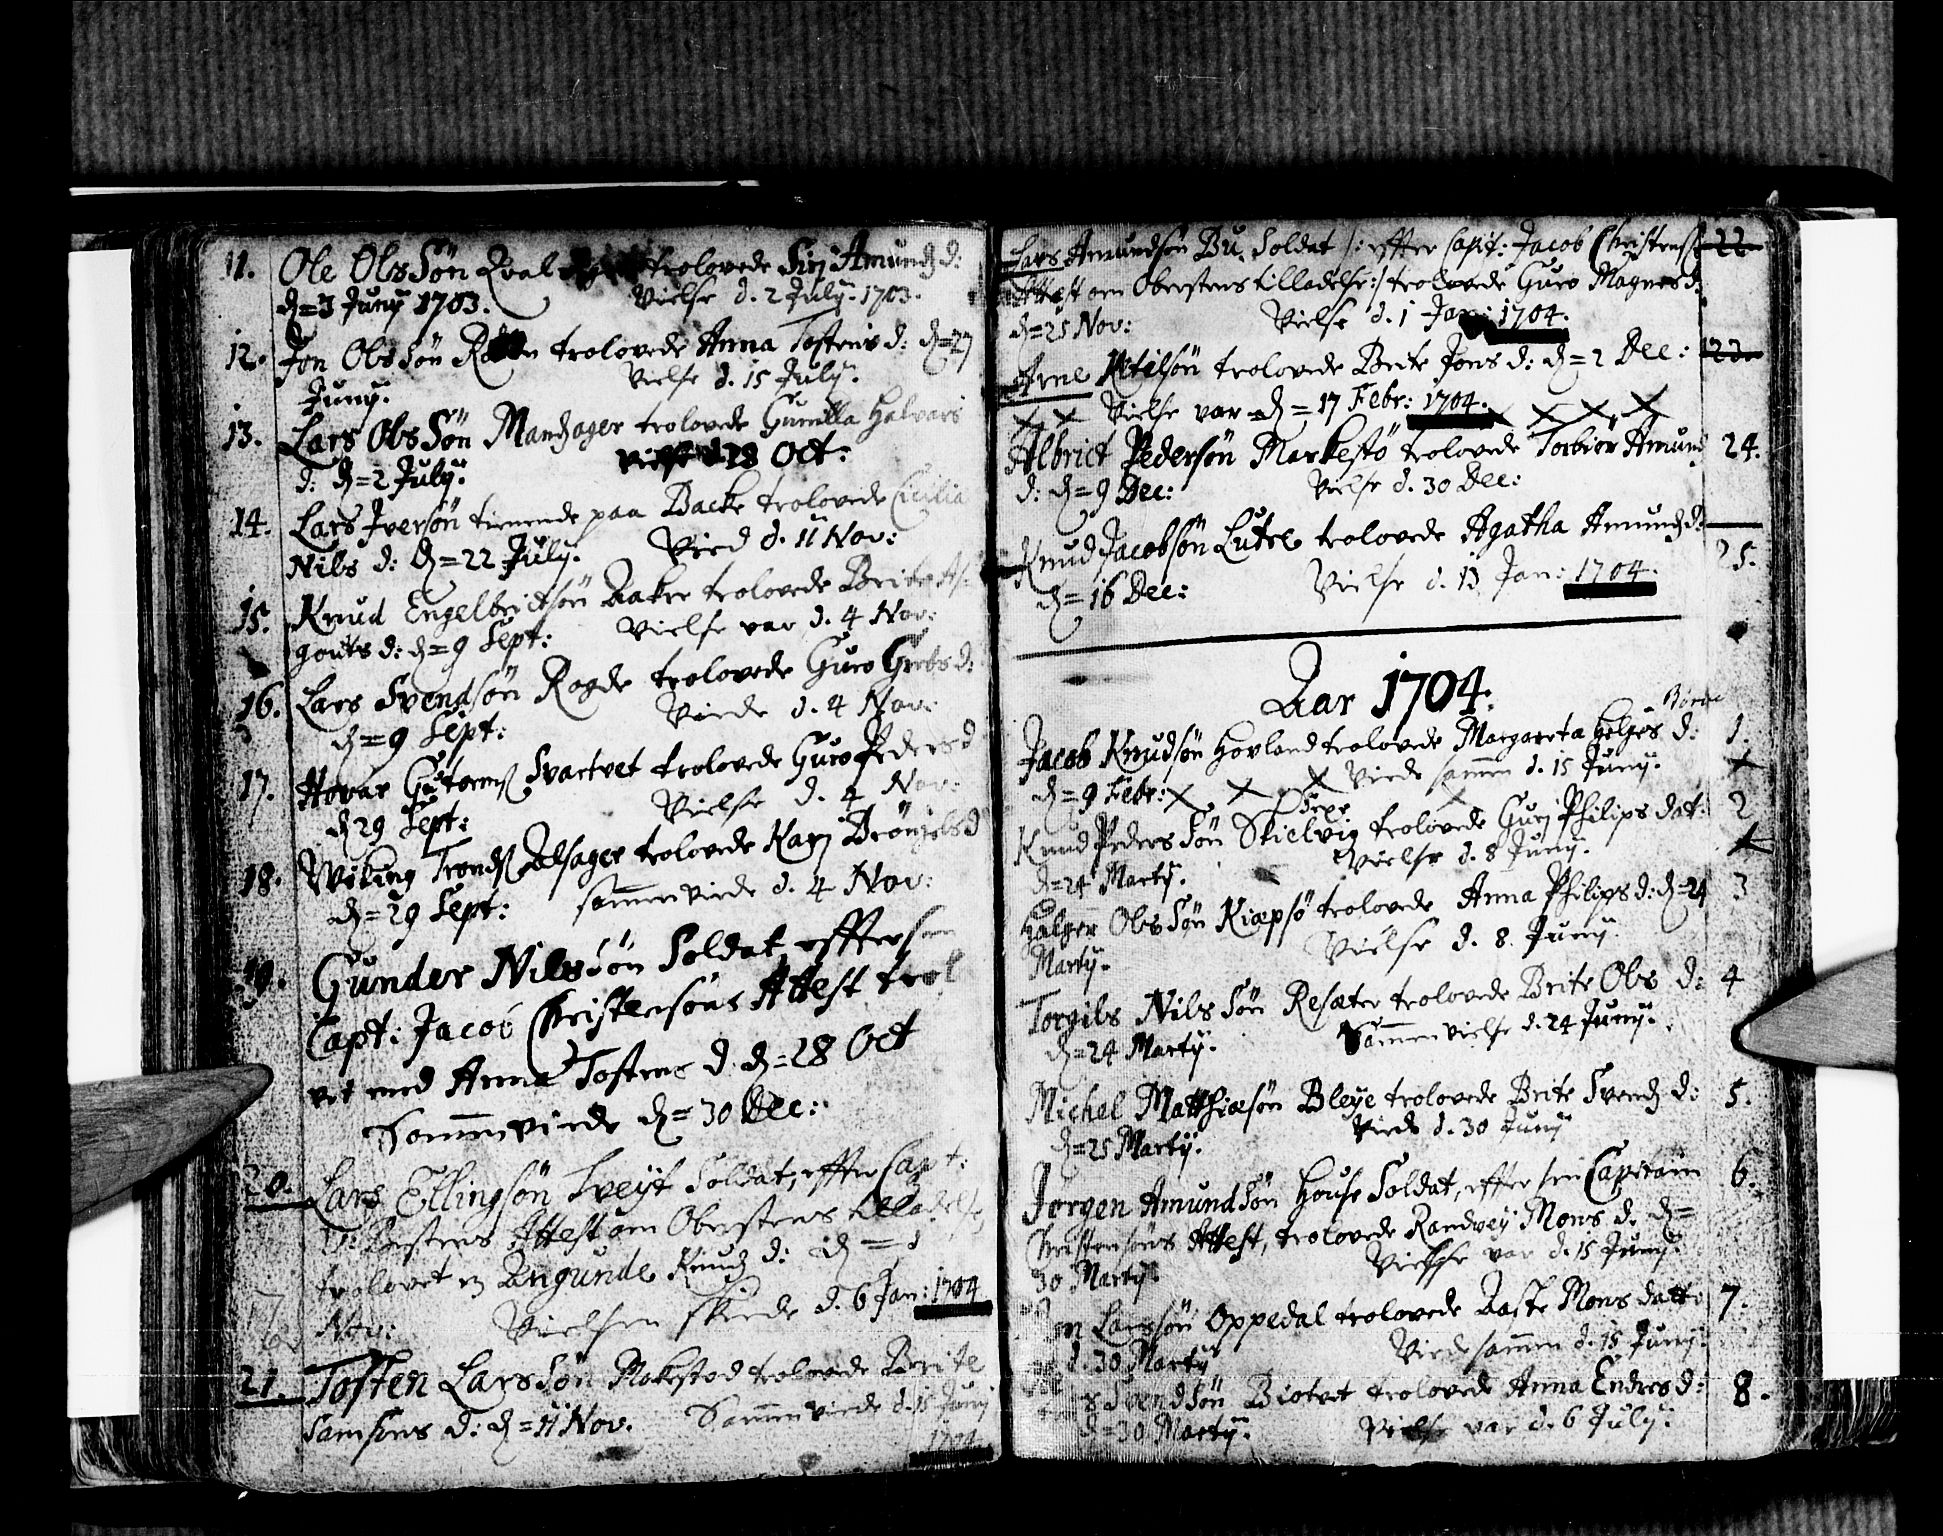 11. Ole Olssön Qval trolovede Siri Amunds d:
d=3 Junÿ 1703. Vielse d. 2 Julÿ. 1703.
12. Jon Olssön trolovede Anna Tostens d: d=27
Junÿ. Vielse d. 15 Julÿ.
13. Lars Olssön Mandzager trolovede Gunilla Halvars
d: d=2 Julÿ. Vielse d. 28 Oct:
14. Lars Iversön tienende paa Backe trolovede Cicilia
Nils d: d=22 Julÿ. Vied d. 11 Nov:
15. Knud Engelbrictsön Aaker trolovede Brite As-
gouts d: d=9 Sept: Vielse var d. 4 Nov:
16. Lars Svendsön Rogde trolovede Guro d:
d=9 Sept: Viede d. 4 Nov:
17. Hovar Gutorms Svartvet trolovede Guro Peders d
d 29 Sept: Vielse d. 4 Nov:
18. Wiking Tronds Aalsager trolovede Kari Brönjels d
d=29 Sept: sammenviede d. 4 Nov:
19. Gunder Nilssön Soldat, effter sin
Capt: Jacob Christensöns Attest trol
vet med Anna Tostens d. d=28 Oct
Sammenviede d=30 Dec:
20. Lars Ellingsön Tveÿt Soldat, effter Capt:
Attest om Oberstens tilladelse,
trolovet m Angunde Knuds d: d=1
Nov: Vielsen skiede d. 6 Jan: 1704
21. Tosten Larssön Mokestad trolovede Brite
Samsons d: d=11 Nov. Sammenviede d. 15 Junÿ
1704.
Lars Amundsön Bu, Soldat /: effter Capit: Jacob Christens 22
Attest om Oberstens tilladelse :/ trolovede Guro Magnes d:
d=25 Nov: Vielse d. 1 Jan: 1704.
Arne Ketelsön trolovede Brite Jons d: d=2 Dec: 23
Vielse var d=17 Febr: 1704.
Albrict Pedersön Markestö trolovede Torbiör Amund 24.
d: d=9 Dec: Vielse d. 30 Dec:
Knud Jacobsön Lutro trolovede Agatha Amunds d: 25.
d=16 Dec: Vielse d. 13 Jan: 1704.
Aar 1704.
Jacob Knudsön Hovland trolovede Margareta Helges d: 1.
d=9 Febr: Viede sammen d. 15 Junÿ.
Knud Pederssön Skielvig trolovede Guri Philips dat: 2
d=24 Martÿ. Vielse d. 8 Junÿ.
Halger Olssön Kiæpsö trolovede Anna Philips d: d=24 3
Martÿ. Vielse d. 8 Junÿ.
Torgils Nilssön Resæter trolovede Brite Ols d: 4
d=24 Martÿ. Sammenvielse d. 24 Junÿ.
Michel Matthiæsön Bleÿe trolovede Brite Svends d: 5.
d=25 Martÿ. Viede d. 30 Junÿ
Jörgen Amundsön House Soldat, effter sin Capitain 6.
Christensöns Attest, trolovede Randveÿ Mons d. d=
30 Martÿ. Vielse var d. 15 Junÿ.
Larssön Oppedal trolovede Aaste Mons datt: 7.
d. 30 Martÿ Viede sammen d. 15 Junÿ.
Svendsön Biotvet trolovede Anna Endres d: 8.
d=30 Martÿ. Vielse var d. 6 Julÿ.